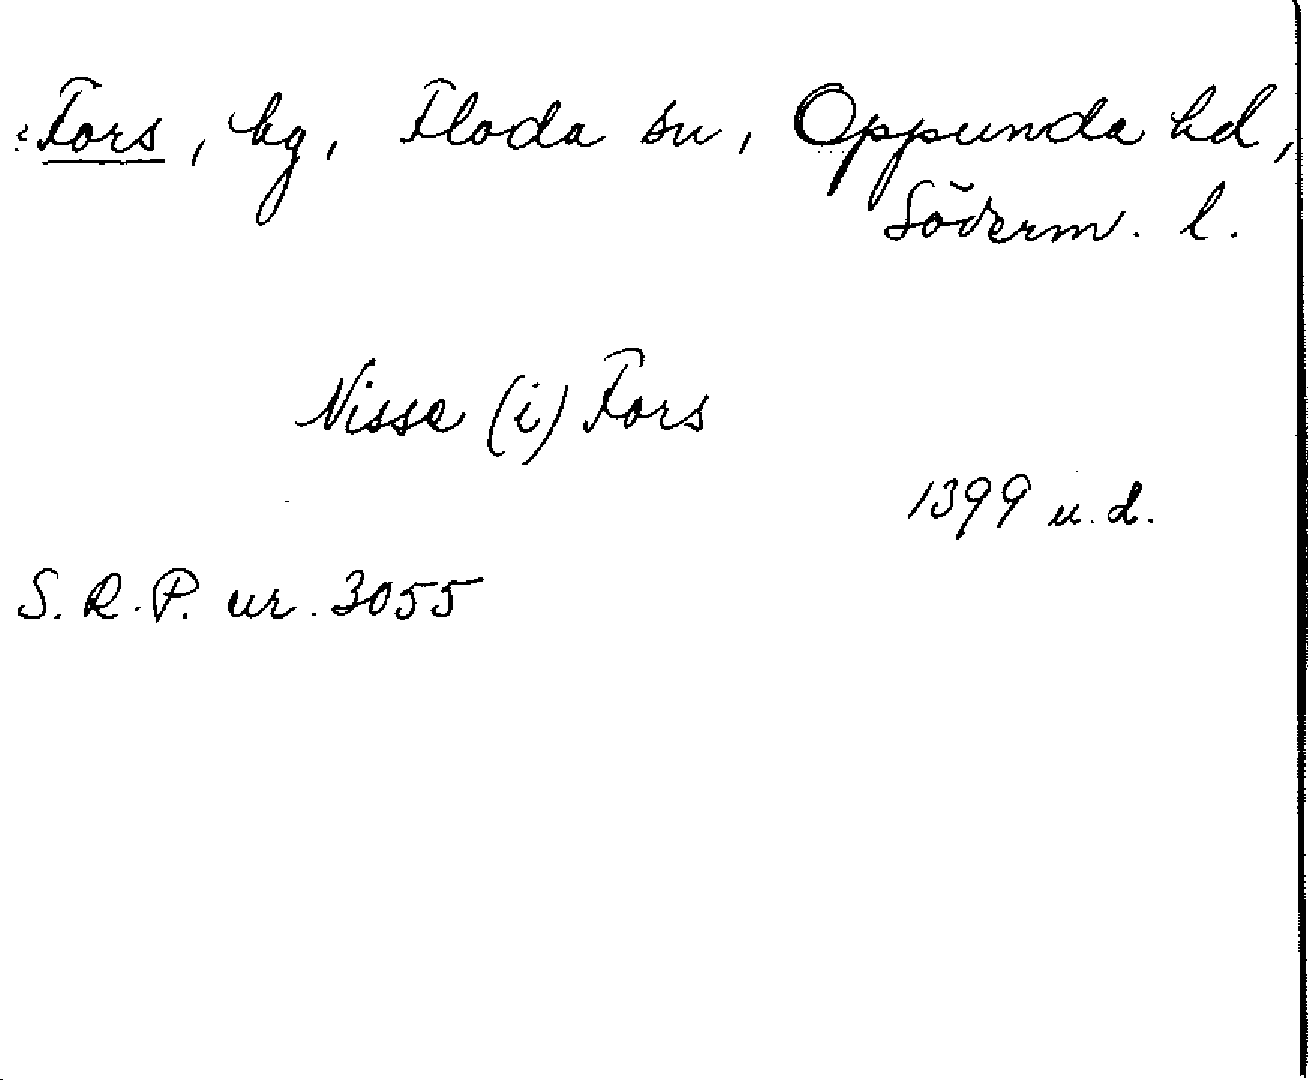 Fors, bg, Floda sn, Oppunda hd,
Söderm. l.
Nisse (i) Fors
1399 u.d.
S.R.P. nr. 3055